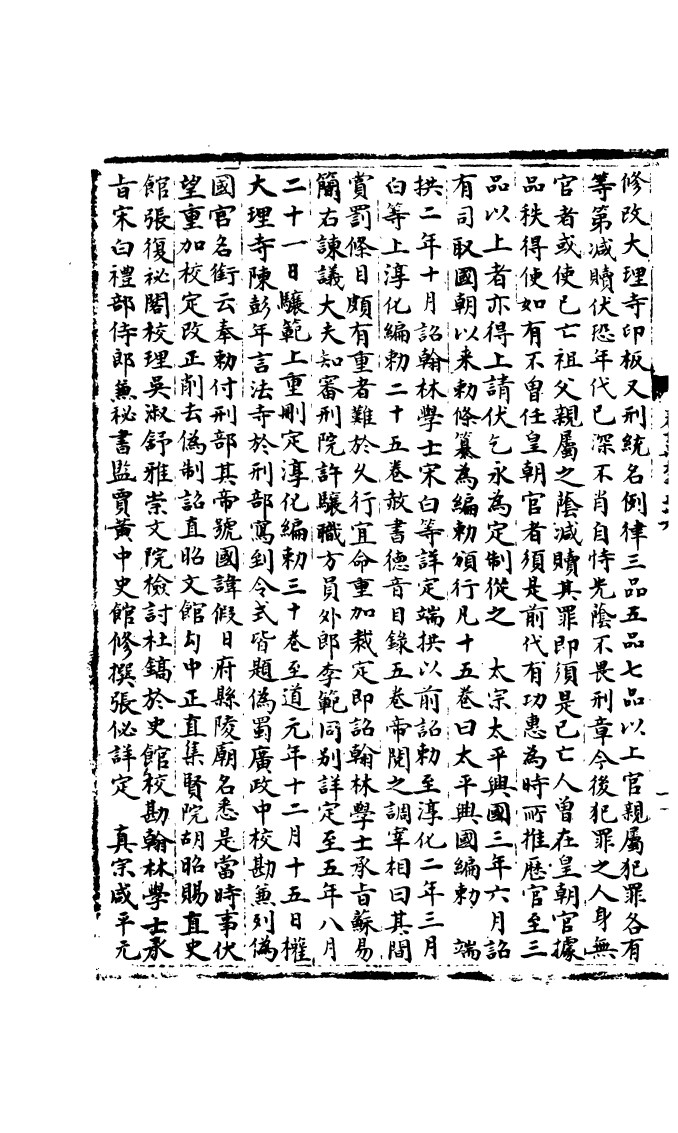 修改大理寺印板又刑統名例律三品五品七品以上官親屬犯罪各有
等第减贖伏恐年代已深不肖自恃先蔭不畏刑章今後犯罪之人身無
官者或使已亡祖父親屬之蔭减贖其罪即須是已亡人曾在皇朝官據
品秩得使如有不曾任皇朝官者須是前代有功惠為時所推歷官至三
品以上者亦得上請伏乞永為定制從之　太宗太平興國三年六月詔
有司取國朝以来勅條纂為編勅頒行凡十五卷曰太平興國編勅　端
拱二年十月詔翰林學士宋白等詳定端拱以前詔勅至淳化二年三月
白等上淳化編勅二十五卷赦書德音目錄五卷帝閱之調宰相曰其間
賞罰條目頗有重者難於久行宜命重加裁定即詔翰林學士承旨蘇易
簡右諫議大夫知審刑院許驤職方員外郎李範同别詳定至五年八月
二十一日驤範上重刪定淳化編勅三十卷至道元年十二月十五日權
大理寺陳彭年言法寺於刑部寫到令式皆題偽蜀廣政中校勘兼列偽
國官名銜云奉勅付刑部其帝號國諱假日府縣陵廟名悉是當時事伏
望重加校定改正削去偽制詔直昭文館勾中正直集賢院胡昭賜直史
館張復祕閣校理吳淑舒雅崇文院檢討杜鎬於史館校勘翰林學士承
旨宋白禮部侍郎兼秘書監賈黃中史館修撰張佖詳定　真宗咸平元